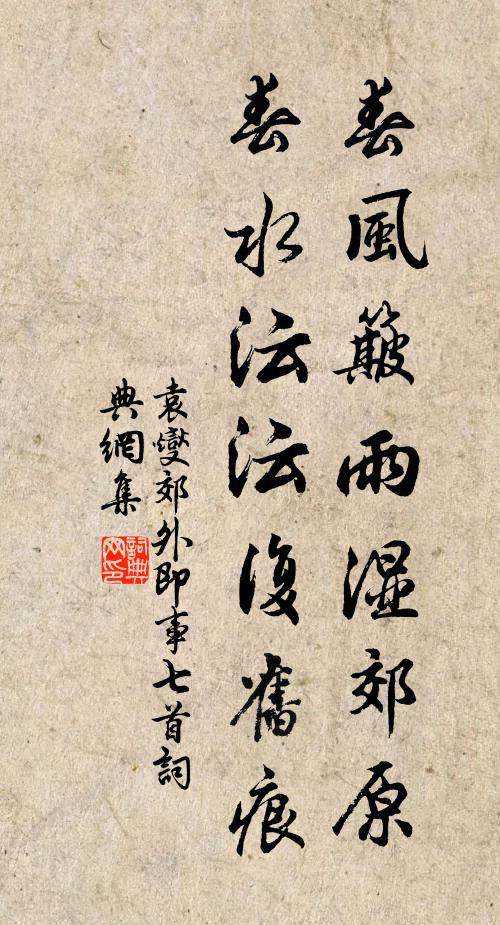 春風簸雨湿郊原
春水沄沄復舊痕
袁燮郊外即事七首詞
典網集
詞典
网印